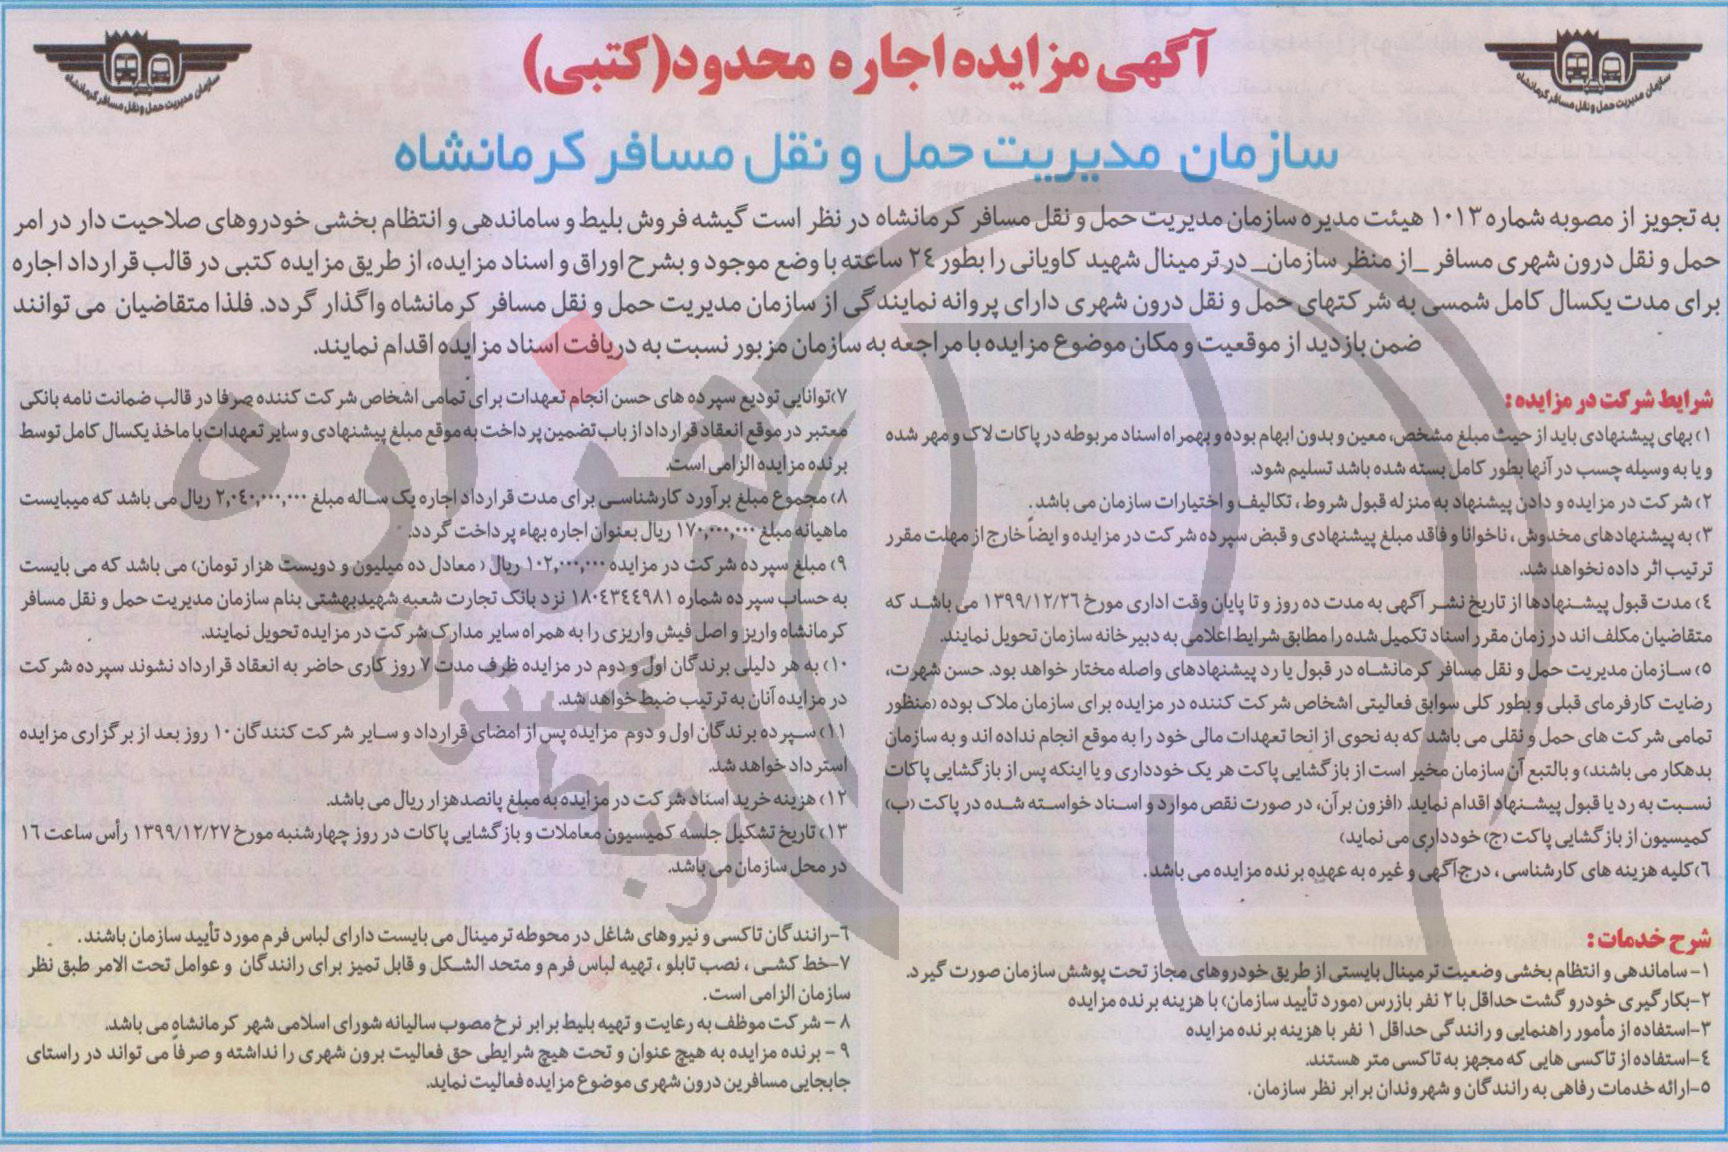 آگهی مزایده اجاره محدود(کتبی)
سازمان مدیریت حمل و نقل مسافر کرمانشاه
سازمان مدیریت حمل و نقل مسافر کرمانشاه
سازمان مدیریت حمل و نقل مسافر کرمانشاه
به تجویز از مصوبه شماره ۱۰۱۳ هیئت مدیره سازمان مدیریت حمل و نقل مسافر کرمانشاه در نظر است گیشه فروش بلیط و ساماندهی و انتظام بخشی خودروهای صلاحیت دار در امر
حمل و نقل درون شهری مسافر _از منظر سازمان_ در ترمینال شهید کاویانی را بطور ۲۴ ساعته با وضع موجود و بشرح اوراق و اسناد مزایده، از طریق مزایده کتبی در قالب قرارداد اجاره
برای مدت یکسال کامل شمسی به شرکتهای حمل و نقل درون شهری دارای پروانه نمایندگی از سازمان مدیریت حمل و نقل مسافر کرمانشاه واگذار گردد. فلذا متقاضیان می توانند
ضمن بازدید از موقعیت و مکان موضوع مزایده با مراجعه به سازمان مزبور نسبت به دریافت اسناد مزایده اقدام نمایند.
شرایط شرکت در مزایده :
۱) بهای پیشنهادی باید از حیث مبلغ مشخص، معین و بدون ابهام بوده و بهمراه اسناد مربوطه در پاکات لاک و مهر شده
و یا به وسیله چسب در آنها بطور کامل بسته شده باشد تسلیم شود.
۲) شرکت در مزایده و دادن پیشنهاد به منزله قبول شروط ، تکالیف و اختیارات سازمان می باشد .
۳) به پیشنهادهای مخدوش ، ناخوانا و فاقد مبلغ پیشنهادی و قبض سپرده شرکت در مزایده و ایضاً خارج از مهلت مقرر
ترتیب اثر داده نخواهد شد.
۴) مدت قبول پیشنهادها از تاریخ نشر آگهی به مدت ده روز و تا پایان وقت اداری مورخ ۱۳۹۹/۱۲/۲۶ می باشد که
متقاضیان مکلف اند در زمان مقرر اسناد تکمیل شده را مطابق شرایط اعلامی به دبیرخانه سازمان تحویل نمایند.
۵) سازمان مدیریت حمل و نقل مسافر کرمانشاه در قبول یا رد پیشنهادهای واصله مختار خواهد بود. حسن شهرت،
رضایت کارفرمای قبلی و بطور کلی سوابق فعالیتی اشخاص شرکت کننده در مزایده برای سازمان ملاک بوده (منظور
تمامی شرکت های حمل و نقلی می باشد که به نحوی از انحا تعهدات مالی خود را به موقع انجام نداده اند و به سازمان
بدهکار می باشند) و بالتبع آن سازمان مخیر است از بازگشایی پاکت هر یک خودداری و یا اینکه پس از بازگشایی پاکات
نسبت به رد یا قبول پیشنهاد اقدام نماید. (افزون بر آن، در صورت نقص موارد و اسناد خواسته شده در پاکت (ب)
کمیسیون از بازگشایی پاکت (ج) خودداری می نماید)
۶) کلیه هزینه های کارشناسی ، درج آگهی و غیره به عهده برنده مزایده می باشد .
۷) توانایی تودیع سپرده های حسن انجام تعهدات برای تمامی اشخاص شرکت کننده صرفا در قالب ضمانت نامه بانکی
معتبر در موقع انعقاد قرارداد از باب تضمین پرداخت به موقع مبلغ پیشنهادی و سایر تعهدات با ماخذ یکسال کامل توسط
برنده مزایده الزامی است.
۸) مجموع مبلغ برآورد کارشناسی برای مدت قرارداد اجاره یک ساله مبلغ ۲,۰۴۰,۰۰۰,۰۰۰ ریال می باشد که میبایست
ماهیانه مبلغ ۱۷۰,۰۰۰,۰۰۰ ریال بعنوان اجاره بهاء پرداخت گردد.
۹) مبلغ سپرده شرکت در مزایده ۱۰۲,۰۰۰,۰۰۰ ریال ( معادل ده میلیون و دویست هزار تومان) می باشد که می بایست
به حساب سپرده شماره ۱۸۰۴۳۴۴۹۸۱ نزد بانک تجارت شعبه شهیدبهشتی بنام سازمان مدیریت حمل و نقل مسافر
کرمانشاه واریز و اصل فیش واریزی را به همراه سایر مدارک شرکت در مزایده تحویل نمایند.
۱۰) به هر دلیلی برندگان اول و دوم در مزایده ظرف مدت ۷ روز کاری حاضر به انعقاد قرارداد نشوند سپرده شرکت
در مزایده آنان به ترتیب ضبط خواهد شد.
۱۱) سپرده برندگان اول و دوم مزایده پس از امضای قرارداد و سایر شرکت کنندگان ۱۰ روز بعد از برگزاری مزایده
استرداد خواهد شد.
۱۲) هزینه خرید اسناد شرکت در مزایده به مبلغ پانصدهزار ریال می باشد.
۱۳) تاریخ تشکیل جلسه کمیسیون معاملات و بازگشایی پاکات در روز چهارشنبه مورخ ۱۳۹۹/۱۲/۲۷ رأس ساعت ۱۶
در محل سازمان می باشد.
شرح خدمات :
۱- ساماندهی و انتظام بخشی وضعیت ترمینال بایستی از طریق خودروهای مجاز تحت پوشش سازمان صورت گیرد.
۲-بکارگیری خودرو گشت حداقل با ۲ نفر بازرس (مورد تأیید سازمان) با هزینه برنده مزایده
۳-استفاده از مأمور راهنمایی و رانندگی حداقل ۱ نفر با هزینه برنده مزایده
۴-استفاده از تاکسی هایی که مجهز به تاکسی متر هستند.
۵-ارائه خدمات رفاهی به رانندگان و شهروندان برابر نظر سازمان .
۶-رانندگان تاکسی و نیروهای شاغل در محوطه ترمینال می بایست دارای لباس فرم مورد تأیید سازمان باشند .
۷-خط کشی ، نصب تابلو ، تهیه لباس فرم و متحد الشکل و قابل تمیز برای رانندگان و عوامل تحت الامر طبق نظر
سازمان الزامی است .
۸ - شرکت موظف به رعایت و تهیه بلیط برابر نرخ مصوب سالیانه شورای اسلامی شهر کرمانشاه می باشد.
۹ - برنده مزایده به هیچ عنوان و تحت هیچ شرایطی حق فعالیت برون شهری را نداشته و صرفاً می تواند در راستای
جابجایی مسافرین درون شهری موضوع مزایده فعالیت نماید.